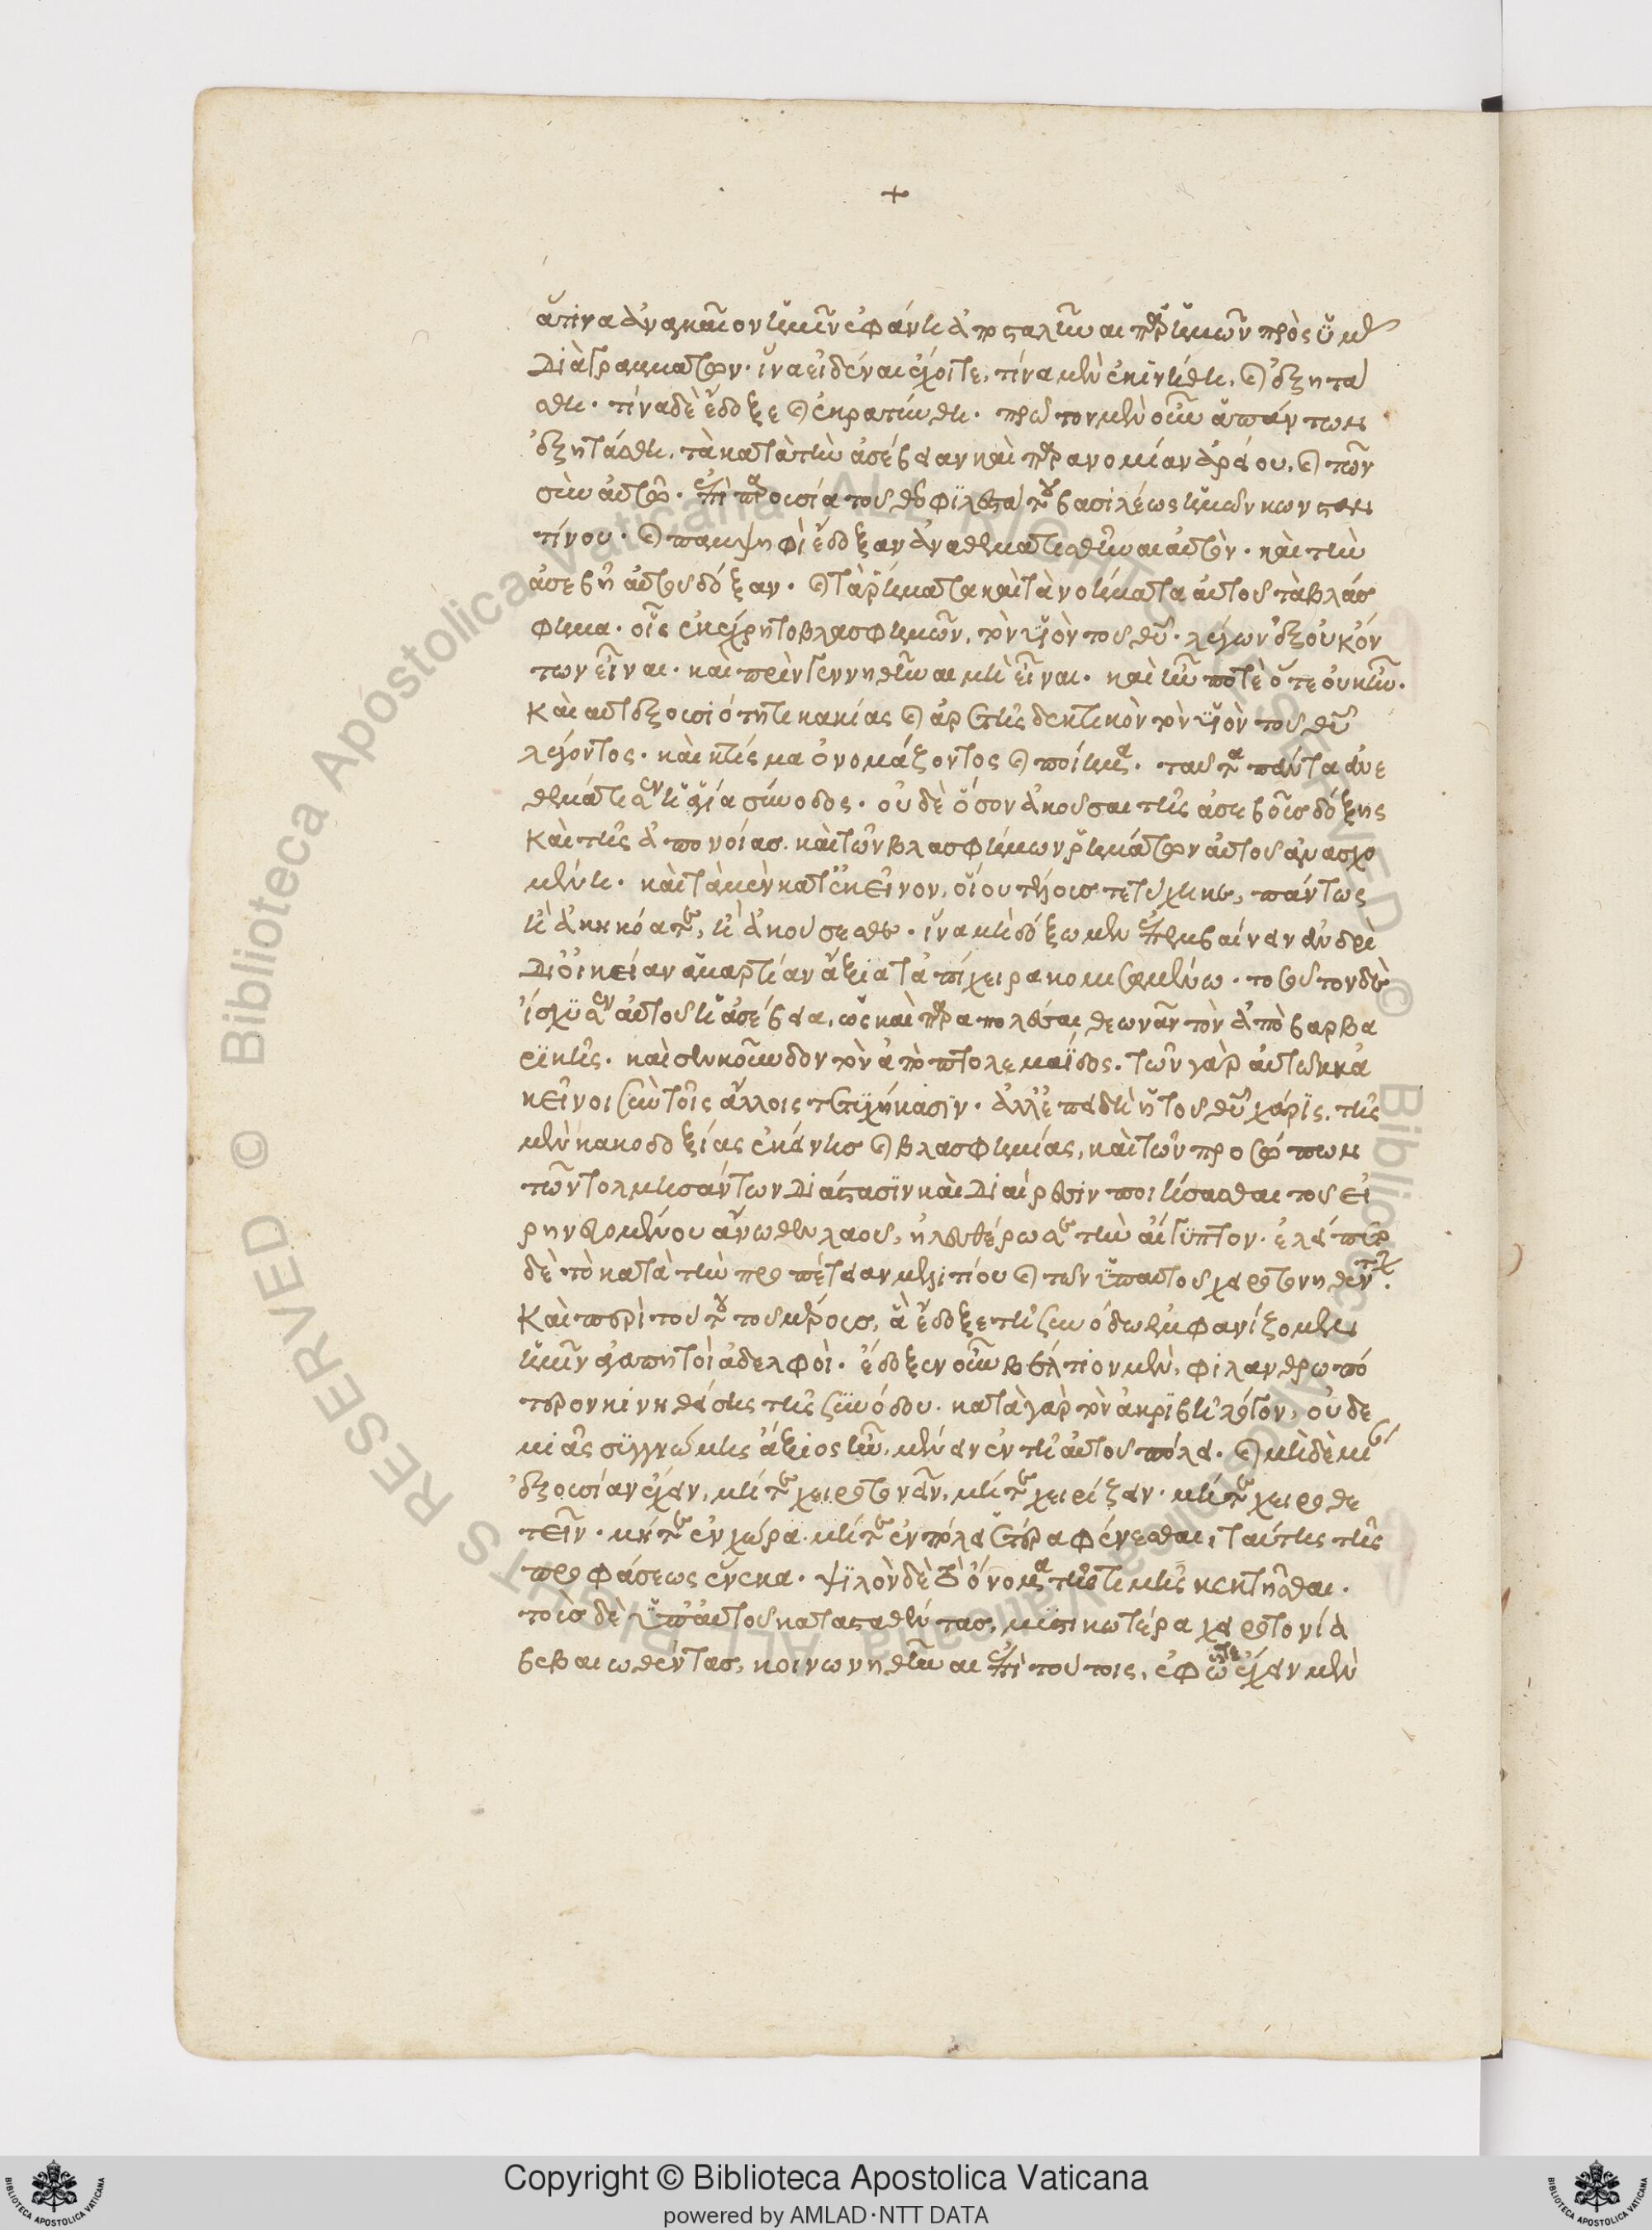 +
ἅτινα ἀναγκαῖον ἡμῖν ἐφάνη ἀποσταλῆναι παρ' ἡμῶν πρὸς ὑμᾶς
διὰ γραμμάτων· ἵνα εἰδέναι ἔχοιτε, τίνα μὲν ἐκινήθη, καὶ ἐξητά
σθη· τίνα δὲ ἔδοξε καὶ ἐκρατύνθη· πρῶτον μὲν οὖν ἁπάντων
ἐξητάσθη, τὰ κατὰ τὴν ἀσέβειαν καὶ παρανομίαν ἀρείου, καὶ τῶν
σὺν αὐτῷ· ἐπὶ παρουσία τοῦ θεοφιλεστάτου βασιλέως ἡμῶν κωνσταν
τίνου· καὶ παμψηφὶ ἔδοξαν ἀναθεματισθῆναι αὐτὸν· καὶ τὴν
ἀσεβῆ αὐτοῦ δόξαν· καὶ τὰ ῥήματα καὶ τὰ νοήματα αὐτοῦ τὰ βλάσ
φημα· οἷς ἐκέχρητο βλασφημῶν, τὸν υἱὸν τοῦ θεοῦ· λέγων ἐξ οὐκ ὄν
των εἶναι· καὶ πρὶν γεννηθῆναι μὴ εἶναι· καὶ ἦν ποτὲ ὅτε οὐκ ἦν·
Καὶ αὐτεξουσιότητι κακίας καὶ ἀρετῆς δεκτικὸν τὸν υἱὸν τοῦ θεοῦ
λέγοντος· καὶ κτίσμα ὀνομάζοντος καὶ ποίημα· ταῦτα πάντα ἀνε
θεμάτισεν ἡ ἁγία σύνοδος· οὐδὲ ὅσον ἀκοῦσαι τῆς ἀσεβοῦς δόξης
Καὶ τῆς ἀπονοίας· καὶ τῶν βλασφήμων ῥημάτων αὐτοῦ ἀνασχο
μένη· καὶ τὰ μὲν κατ' ἐκεῖνον, οἵου τέλους τετύχηκε, πάντως
ἢ ἀκηκόατε, ἢ ἀκούσεσθε· ἵνα μὴ δόξωμεν ἐπεμβαίνειν ἀνδρὶ
δι' οἰκείαν ἁμαρτίαν ἄξια τἀπίχειρα κομισαμένω· τοσοῦτον δὲ
ἴσχυσεν αὐτοῦ ἡ ἀσέβεια, ὡς καὶ παραπολέσαι θεωνᾶν τὸν ἀπὸ μαρμα
ρικῆς· καὶ σεκοῦνδον τὸν ἀπὸ πτολεμαΐδος· τῶν γὰρ αὐτῶν κἀ
κεῖνοι σὺν τοῖς ἄλλοις τετυχήκασιν· ἀλλ' ἐπειδὴ ἡ τοῦ θεοῦ χάρις, τῆς
μὲν κακοδοξίας ἐκείνης καὶ βλασφημίας, καὶ τῶν προσώπων
τῶν τολμησάντων διάστασιν καὶ διαίρεσιν ποιήσασθαι τοῦ εἰ
ρηνευομένου ἄνωθεν λαοῦ, ἠλευθέρωσε τὴν αἴγυπτον· ἐλείπετο
δὲ τὸ κατὰ τὴν προπέτειαν μελιτίου καὶ τῶν ὑπ' αὐτοῦ χειροτονηθέντων·
Καὶ περὶ τούτου τοῦ μέρους, ἃ ἔδοξε τῇ συνόδω ἐμφανίζομεν
ἡμῖν ἀγαπητοὶ ἀδελφοὶ· ἔδοξεν οὖν βελτίον μὲν, φιλανθρωπό
τερον κινηθείσης τῆς συνόδου· κατὰ γὰρ τὸν ἀκριβῆ λόγον, οὐδε
μιᾶς συγγνώμης ἄξιος ἦν, μένειν ἐν τῇ αὐτοῦ πόλει· καὶ μηδεμί
ἐξουσίαν ἔχειν, μήτε χειροτονεῖν, μήτε χειρίζειν· μήτε χειροθε
τεῖν· μήτε ἐν χώρα· μήτε ἐν πόλει ἑτέρα φαίνεσθαι, ταύτης τῆς
προφάσεως ἕνεκα· ψιλὸν δὲ τὸ ὄνομα τῆς τιμῆς κεκτῆσθαι·
τοὺς δὲ ὑπ' αὐτοῦ κατασταθέντας, μυστικωτέρα χειροτονία
βεβαιωθέντας, κοινωνηθῆναι ἐπὶ τούτοις, ἐφ' ᾧτε ἔχειν μὲν